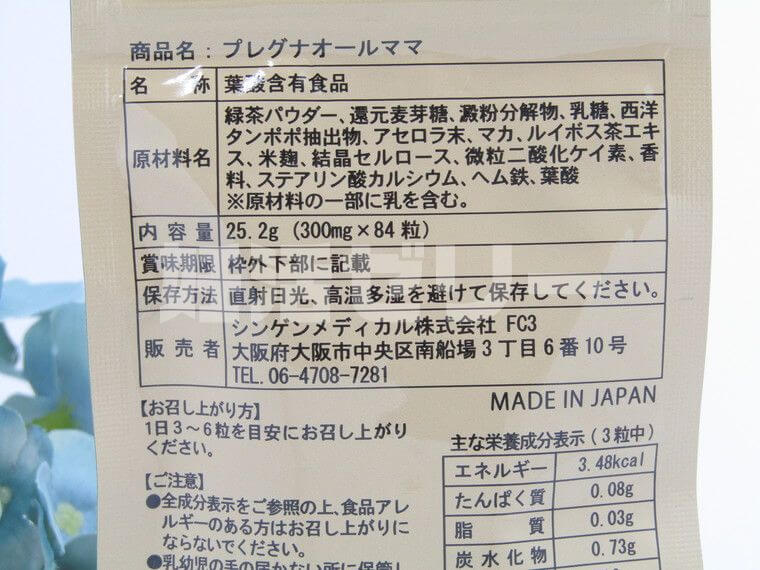 商品名：プレグナオールママ
名 称 葉酸含有食品
原材料名 緑茶パウダー、還元麦芽糖、澱粉分解物、乳糖、西洋
タンポポ抽出物、アセロラ末、マカ、ルイボス茶エキ
ス、米麹、結晶セルロース、微粒二酸化ケイ素、香
料、ステアリン酸カルシウム、ヘム鉄、葉酸
※原材料の一部に乳を含む。
内容量 25.2g（300mg×84粒）
賞味期限 枠外下部に記載
保存方法 直射日光、高温多湿を避けて保存してください。
販売者 シンゲンメディカル株式会社 FC3
大阪府大阪市中央区南船場3丁目6番10号
TEL. 06-4708-7281
MADE IN JAPAN
【お召し上がり方】
1日3～6粒を目安にお召し上がり
ください。
【ご注意】
●全成分表示をご参照の上、食品アレ
ルギーのある方はお召し上がりに
ならないでください。
●乳幼児の手の届かない所に保管し
主な栄養成分表示（3粒中）
エネルギー 3.48kcal
たんぱく質 0.08g
脂 質 0.03g
炭水化物 0.73g